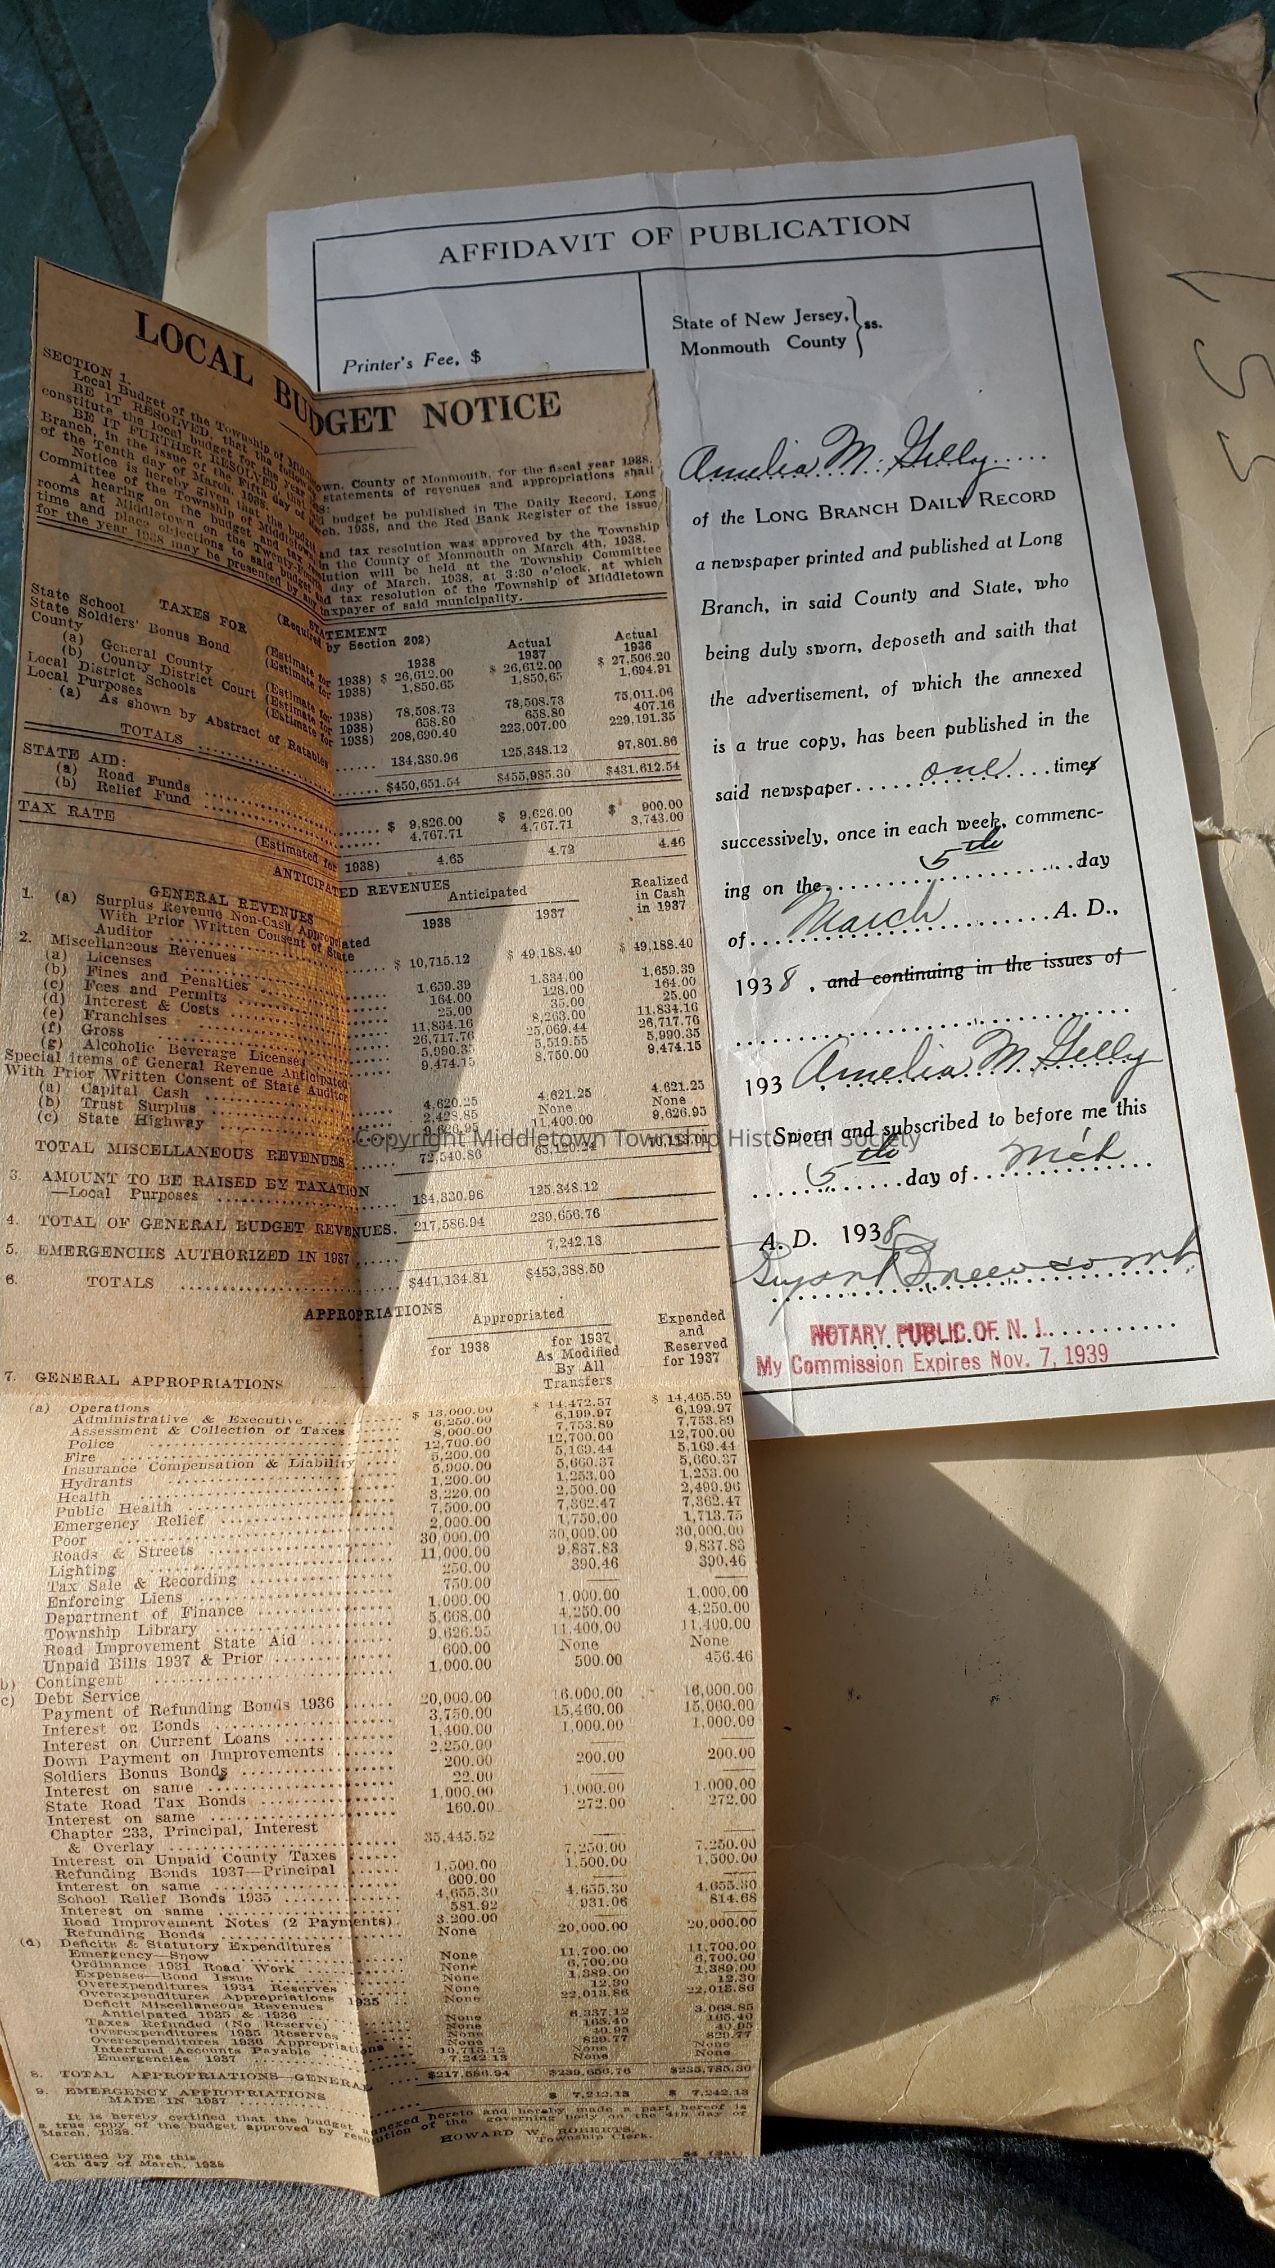 AFFIDAVIT OF PUBLICATION
Printer's Fee, $
State of New Jersey,
Monmouth County } ss.
Amelia M. Gelly
of the LONG BRANCH DAILY RECORD
a newspaper printed and published at Long
Branch, in said County and State, who
being duly sworn, deposeth and saith that
the advertisement, of which the annexed
is a true copy, has been published in the
said newspaper one times
successively, once in each week, commenc-
ing on the 5th day
of March A. D.,
1938, and continuing in the issues of
193 Amelia M. Gelly
Sworn and subscribed to before me this
5th day of Mch
A. D. 1938
NOTARY PUBLIC OF N. J.
My Commission Expires Nov. 7, 1939
LOCAL BUDGET NOTICE
SECTION 1.
Local Budget of the Township of Middletown, County of Monmouth, for the fiscal year 1938.
BE IT RESOLVED, that the statements of revenues and appropriations shall
constitute the local budget for the year
BE IT FURTHER RESOLVED, that said budget be published in The Daily Record, Long
Branch, in the issue of the Fifth day of March, 1938, and the Red Bank Register of the issue
of the Tenth day of March, 1938.
Notice is hereby given that the budget and tax resolution was approved by the Township
Committee of the Township of Middletown in the County of Monmouth on March 4th, 1938.
A hearing on the budget and tax resolution will be held at the Township Committee
rooms at Middletown on the day of March, 1938, at 3:30 o'clock, at which
time and place objections to said budget and tax resolution of the Township of Middletown
for the year 1938 may be presented by any taxpayer of said municipality.
STATEMENT
(Required by Section 202)
TAXES FOR 1938 Actual 1937 Actual 1936
State School (Estimate for 1938) $ 26,612.00 $ 26,612.00 $ 27,506.20
State Soldiers' Bonus Bond (Estimate for 1938) 1,850.65 1,850.65 1,694.91
County
(a) General County (Estimate for 1938) 78,508.73 78,508.73 75,011.06
(b) County District Court (Estimate for 1938) 658.80 658.80 407.16
Local District Schools (Estimate for 1938) 208,690.40 223,007.00 229,191.35
Local Purposes
(a) As shown by Abstract of Ratables 134,330.96 125,348.12 97,801.86
TOTALS $450,651.54 $455,985.30 $431,612.54
STATE AID:
(a) Road Funds $ 9,826.00 $ 9,626.00 $ 900.00
(b) Relief Fund 4,767.71 4,767.71 3,743.00
TAX RATE (Estimated for 1938) 4.65 4.72 4.46
ANTICIPATED REVENUES
GENERAL REVENUES Anticipated 1938 1937 Realized in Cash in 1937
1. (a) Surplus Revenue Non-Cash Appropriated
With Prior Written Consent of State
Auditor $ 10,715.12 $ 49,188.40 $ 49,188.40
2. Miscellaneous Revenues
(a) Licenses 1,659.39 1,334.00 1,659.39
(b) Fines and Penalties 164.00 128.00 164.00
(c) Fees and Permits 25.00 35.00 25.00
(d) Interest & Costs 11,834.16 8,263.00 11,834.16
(e) Franchises 26,717.76 25,069.44 26,717.76
(f) Gross 5,990.35 5,519.55 5,990.35
(g) Alcoholic Beverage Licenses 9,474.15 8,750.00 9,474.15
Special items of General Revenue Anticipated
With Prior Written Consent of State Auditor
(a) Capital Cash 4,620.25 4,621.25 4,621.25
(b) Trust Surplus 2,428.85 None None
(c) State Highway 9,626.95 11,400.00 9,626.95
TOTAL MISCELLANEOUS REVENUES 72,540.86 65,120.24
3. AMOUNT TO BE RAISED BY TAXATION
—Local Purposes 134,330.96 125,348.12
4. TOTAL OF GENERAL BUDGET REVENUES. 217,586.94 239,656.76
5. EMERGENCIES AUTHORIZED IN 1937 7,242.13
6. TOTALS $441,134.81 $453,388.50
APPROPRIATIONS
Appropriated for 1938 for 1937 As Modified By All Transfers Expended and Reserved for 1937
7. GENERAL APPROPRIATIONS
(a) Operations
Administrative & Executive $ 13,000.00 $ 14,472.57 $ 14,465.59
Assessment & Collection of Taxes 6,250.00 6,199.97 6,199.97
Police 8,000.00 7,753.89 7,753.89
Fire 12,700.00 12,700.00 12,700.00
Insurance Compensation & Liability 5,200.00 5,169.44 5,169.44
Hydrants 5,900.00 5,660.37 5,660.37
Health 1,200.00 1,253.00 1,253.00
Public Health 3,220.00 2,500.00 2,499.96
Emergency Relief 7,500.00 7,362.47 7,362.47
Poor 2,000.00 1,750.00 1,713.75
Roads & Streets 30,000.00 30,000.00 30,000.00
Lighting 11,000.00 9,837.83 9,837.83
Tax Sale & Recording 250.00 390.46 390.46
Enforcing Liens 750.00
Department of Finance 1,000.00 1,000.00 1,000.00
Township Library 5,668.00 4,250.00 4,250.00
Road Improvement State Aid 9,626.95 11,400.00 11,400.00
Unpaid Bills 1937 & Prior 600.00 None None
(b) Contingent 1,000.00 500.00 456.46
(c) Debt Service
Payment of Refunding Bonds 1936 20,000.00 16,000.00 16,000.00
Interest on Bonds 3,750.00 15,460.00 15,060.00
Interest on Current Loans 1,400.00 1,000.00 1,000.00
Down Payment on Improvements 2,250.00
Soldiers Bonus Bonds 200.00 200.00 200.00
Interest on same 22.00
State Road Tax Bonds 1,000.00 1,000.00 1,000.00
Interest on same 160.00 272.00 272.00
Chapter 233, Principal, Interest
& Overlay 35,445.52
Interest on Unpaid County Taxes 7,250.00 7,250.00
Refunding Bonds 1937—Principal 1,500.00 1,500.00 1,500.00
Interest on same 600.00
School Relief Bonds 1935 4,655.30 4,655.30 4,655.30
Interest on same 581.92 931.06 814.68
Road Improvement Notes (2 Payments) 3,200.00
Refunding Bonds None 20,000.00 20,000.00
(d) Deficits & Statutory Expenditures
Emergency—Snow None 11,700.00 11,700.00
Ordinance 1931 Road Work None 6,700.00 6,700.00
Expenses—Bond Issue None 1,389.00 1,389.00
Overexpenditures 1934 Reserves None 12.30 12.30
Overexpenditures Appropriations 1935 None 22,013.86 22,013.86
Deficit Miscellaneous Revenues
Anticipated 1935 & 1936 None 6,337.12 3,068.85
Taxes Refunded (No Reserve) None 165.40 165.40
Overexpenditures 1935 Reserves None 40.95 40.95
Overexpenditures 1936 Appropriations None 829.77 829.77
Interfund Accounts Payable 10,715.12 None None
Emergencies 1937 7,242.13 None None
8. TOTAL APPROPRIATIONS—GENERAL $217,586.94 $239,656.76 $235,785.30
9. EMERGENCY APPROPRIATIONS
MADE IN 1937 $ 7,242.13 $ 7,242.13
It is hereby certified that the budget annexed hereto and hereby made a part hereof is
a true copy of the budget approved by resolution of the governing body on the 4th day of
March, 1938.
HOWARD W. ROBERTS,
Township Clerk.
Certified by me this
4th day of March, 1938
Copyright Middletown Township Historical Society